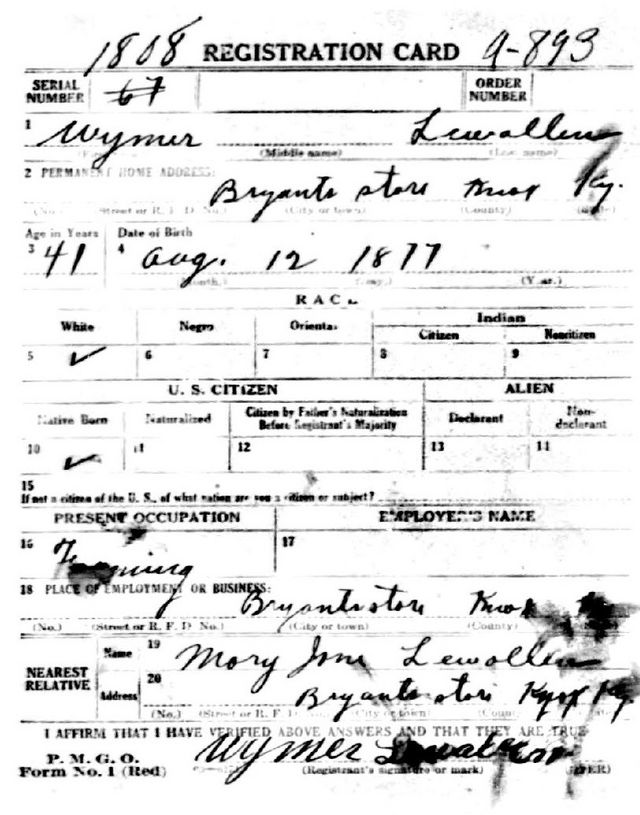 1808 REGISTRATION CARD 9-893
SERIAL NUMBER 67 ORDER NUMBER
1 Wymer Lewallen
(Middle name) (Last name)
2 PERMANENT HOME ADDRESS:
Bryants store Knox Ky.
(No.) Street or R. F. D. No.) (City or town) (County) (State)
Age in Years Date of Birth
3 41 4 Aug. 12 1877
(Month.) (Day.) (Year.)
RACE
White Negro Oriental Indian
Citizen Noncitizen
5 ✓ 6 7 8 9
U. S. CITIZEN ALIEN
Native Born Naturalized Citizen by Father's Naturalization Before Registrant's Majority Declarant Non-declarant
10 ✓ 11 12 13 14
15
If not a citizen of the U. S., of what nation are you a citizen or subject?
PRESENT OCCUPATION EMPLOYER'S NAME
16 Farming 17
18 PLACE OF EMPLOYMENT OR BUSINESS:
Bryants store Knox
(No.) (Street or R. F. D. No.) (City or town) (County)
NEAREST RELATIVE
Name 19 Mary Jane Lewallen
Address 20 Bryants store Knox Ky
(No.) (Street or R. F. D. No.) (City or town)
I AFFIRM THAT I HAVE VERIFIED ABOVE ANSWERS AND THAT THEY ARE TRUE
P. M. G. O.
Form No. 1 (Red) Wymer Lewallen
(Registrant's signature or mark) (OVER)